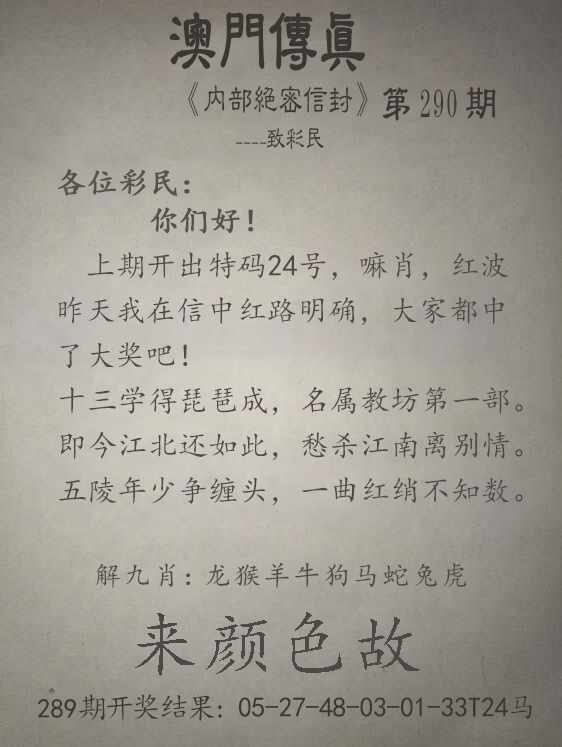 澳門傳眞
《内部絕密信封》第290期
----致彩民
各位彩民：
你们好！
上期开出特码24号，嘛肖，红波
昨天我在信中红路明确，大家都中
了大奖吧！
十三学得琵琶成，名属教坊第一部。
即今江北还如此，愁杀江南离别情。
五陵年少争缠头，一曲红绡不知数。
解九肖：龙猴羊牛狗马蛇兔虎
来颜色故
289期开奖结果：05-27-48-03-01-33T24马